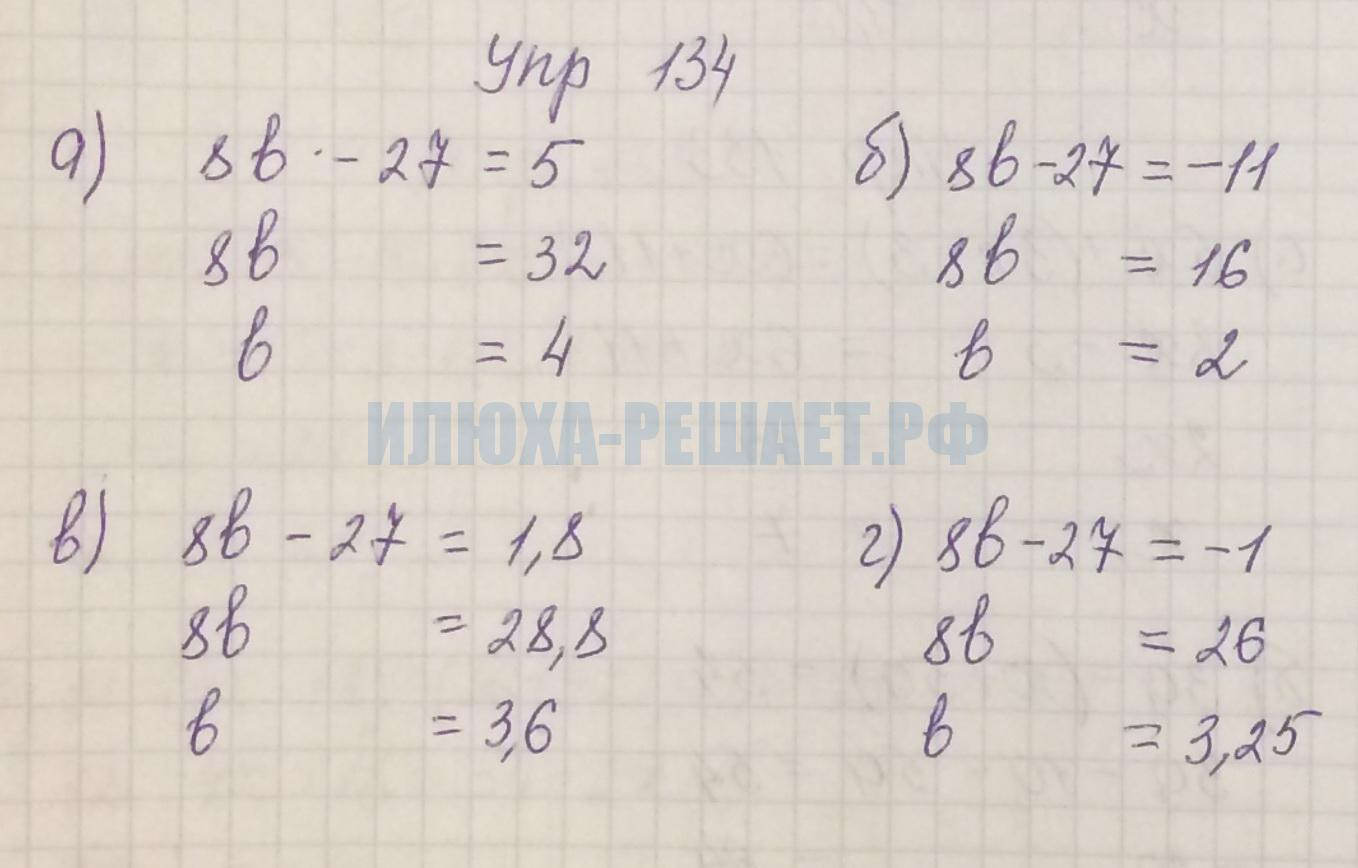 Упр 134
а) 8b - 27 = 5
8b = 32
b = 4
б) 8b - 27 = -11
8b = 16
b = 2
ИЛЮХА-РЕШАЕТ.РФ
в) 8b - 27 = 1,8
8b = 28,8
b = 3,6
г) 8b - 27 = -1
8b = 26
b = 3,25